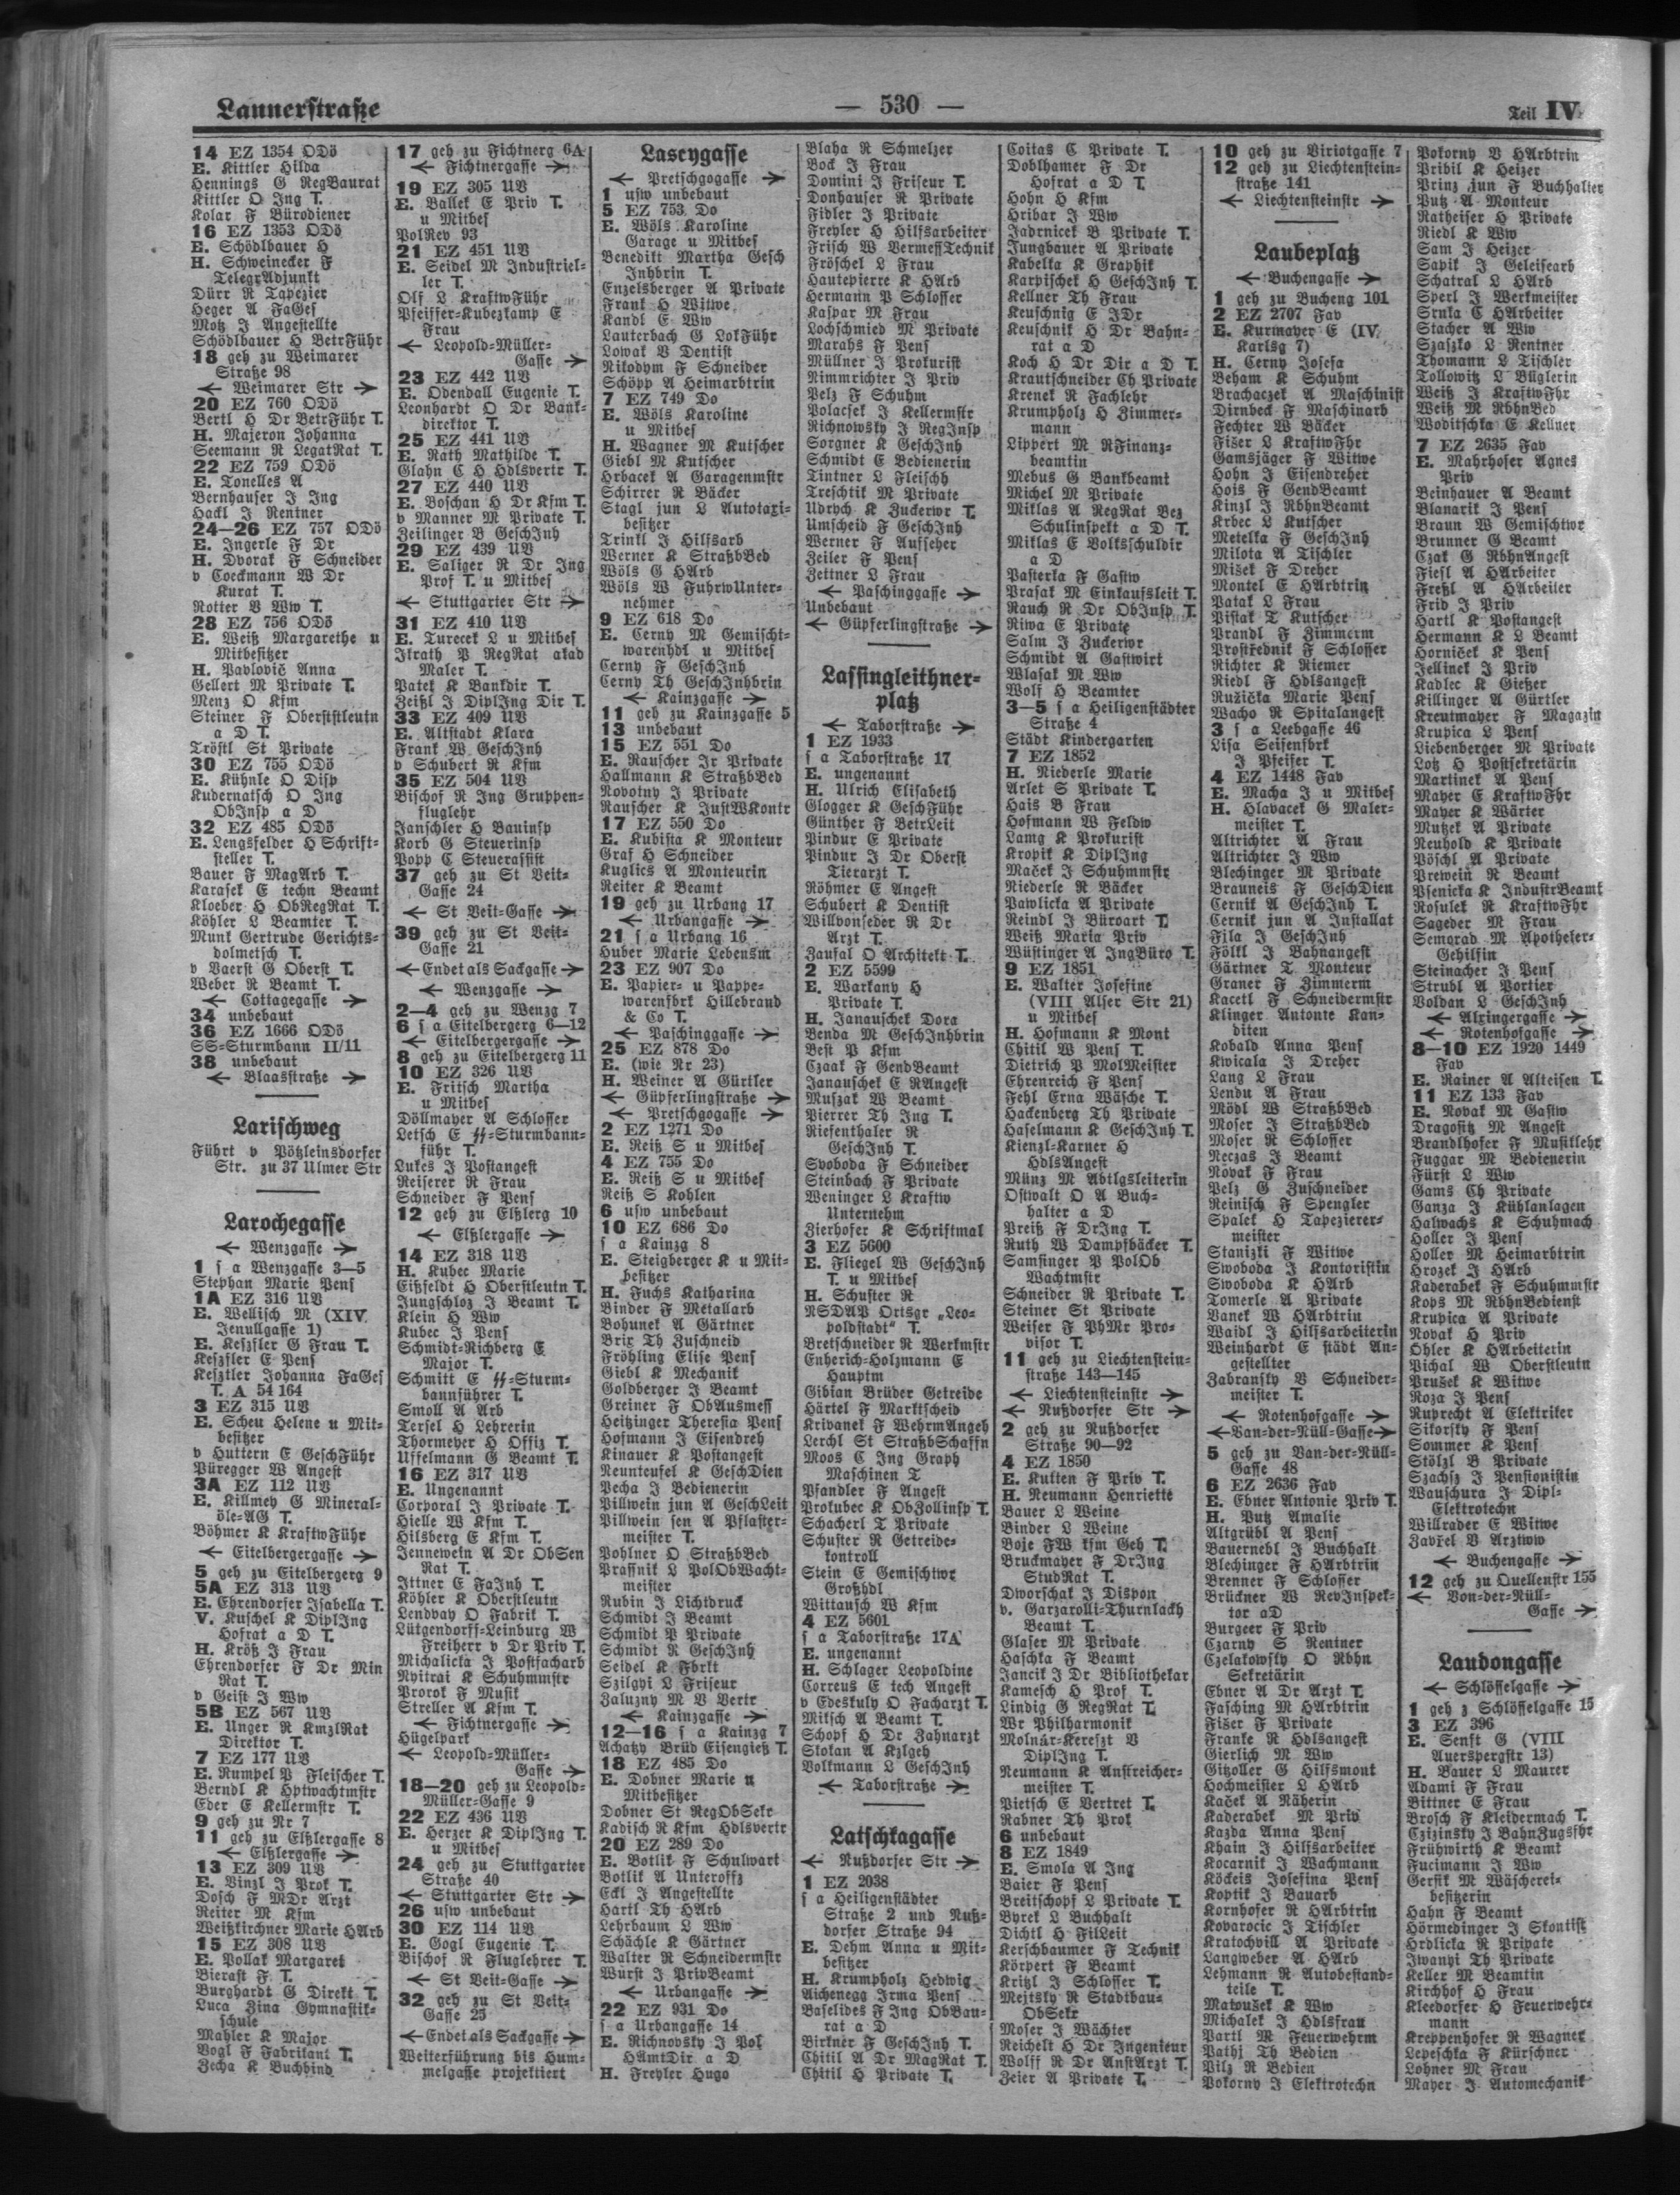 Lannerstraße
— 530 —
Teil IV
14 EZ 1354 ODö
E. Kittler Hilda
Hennings G RegBaurat
Kittler O Ing T.
Kolar F Bürodiener
16 EZ 1353 ODö
E. Schödlbauer H
H. Schweinecker F
TelegrAdjunkt
Dürr R Tapezier
Heger A FaGes
Motz J Angestellte
Schödlbauer H BetrFühr
18 geh zu Weimarer
Straße 98
← Weimarer Str →
20 EZ 760 ODö
Bertl H Dr BetrFühr T.
H. Majeron Johanna
Seemann R LegatRat T.
22 EZ 759 ODö
E. Tonelles A
Bernhauser J Ing
Hackl J Rentner
24—26 EZ 757 ODö
E. Ingerle F Dr
H. Dvorak F Schneider
v Coeckmann W Dr
Kurat T.
Rotter V Ww T.
28 EZ 756 ODö
E. Weiß Margarethe u
Mitbesitzer
H. Pavlovič Anna
Gellert M Private T.
Menz O Kfm
Steiner F Oberstleutn
a D T.
Tröstl St Private
30 EZ 755 ODö
E. Kühnle O Disp
Kudernatsch O Ing
ObInsp a D
32 EZ 485 ODö
E. Lengsfelder H Schrift-
steller T.
Bauer F MagArb T.
Karasek E techn Beamt
Kloeber H ObRegRat T.
Köhler L Beamter T.
Munk Gertrude Gerichts-
dolmetsch T.
v Vaerst G Oberst T.
Weber R Beamt T.
← Cottagegasse →
34 unbebaut
36 EZ 1666 ODö
SS-Sturmbann II/11
38 unbebaut
← Blaasstraße →
Larischweg
Führt v Pötzleinsdorfer
Str. zu 37 Ulmer Str
Larochegasse
← Wenzgasse →
1 s a Wenzgasse 3—5
Stephan Marie Pens
1A EZ 316 UV
E. Wellisch M (XIV
Jenullgasse 1)
E. Keszler G Frau T.
Keszler E Pens
Kesztler Johanna FaGes
T. A 54 164
3 EZ 315 UV
E. Scheu Helene u Mit-
besitzer
v Huttern E GeschFühr
Püregger W Angest
3A EZ 112 UV
E. Killmey G Mineral-
öle-AG T.
Böhmer K KraftwFühr
← Eitelbergergasse →
5 geh zu Eitelbergerg 9
5A EZ 313 UV
E. Ehrendorfer Isabella T.
V. Kuschel K DiplIng
Hofrat a D T.
H. Kröß J Frau
Ehrendorfer F Dr Min
Rat T.
v Geist J Ww
5B EZ 567 UV
E. Unger R KmzlRat
Direktor T.
7 EZ 177 UV
E. Rumpel P Fleischer T.
Berndl K Hptwachtmstr
Eder E Kellermstr T.
9 geh zu Nr 7
11 geh zu Elßlergasse 8
← Elßlergasse →
13 EZ 309 UV
E. Vinzl J Prok T.
Dosch F MDr Arzt
Reiter M Kfm
Weißkirchner Marie HArb
15 EZ 308 UV
E. Pollak Margaret
Bierast F T.
Burghardt G Direkt T.
Luca Zina Gymnastik-
schule
Mahler K Major
Vogl F Fabrikant T.
Zecha K Buchbind
17 geh zu Fichtnerg 6A
← Fichtnergasse →
19 EZ 305 UV
E. Ballek E Priv T.
u Mitbes
PolRev 93
21 EZ 451 UV
E. Seidel M Industriel-
ler T.
Olf L KraftwFühr
Pfeiffer-Kubezkamp E
Frau
← Leopold-Müller-
Gasse →
23 EZ 442 UV
E. Odendall Eugenie T.
Leonhardt O Dr Bank-
direktor T.
25 EZ 441 UV
E. Rath Mathilde T.
Glahn C H Hdlsvertr T.
27 EZ 440 UV
E. Boschan H Dr Kfm T.
v Manner M Private T.
Zeilinger B GeschInh
29 EZ 439 UV
E. Saliger R Dr Ing
Prof T. u Mitbes
← Stuttgarter Str →
31 EZ 410 UV
E. Turecek L u Mitbes
Ilrath P RegRat akad
Maler T.
Patek K Bankdir T.
Zeißl J DiplIng Dir T.
33 EZ 409 UV
E. Altstadt Klara
Frank W GeschInh
v Schubert R Kfm
35 EZ 504 UV
Bischof R Ing Gruppen-
fluglehr
Janschler H Bauinsp
Korb G Steuerinsp
Popp C Steuerassist
37 geh zu St Veit-
Gasse 24
← St Veit-Gasse →
39 geh zu St Veit-
Gasse 21
← Endet als Sackgasse →
← Wenzgasse →
2—4 geh zu Wenzg 7
6 s a Eitelbergerg 6—12
← Eitelbergergasse →
8 geh zu Eitelbergerg 11
10 EZ 326 UV
E. Fritsch Martha
u Mitbes
Döllmayer A Schlosser
Letsch E SS-Sturmbann-
führ T.
Lukes J Postangest
Reiserer R Frau
Schneider F Pens
12 geh zu Elßlerg 10
← Elßlergasse →
14 EZ 318 UV
H. Kubec Marie
Eißfeldt H Oberstleutn T.
Jungschloz J Beamt T.
Klein H Ww
Kubec J Pens
Schmidt-Richberg E
Major T.
Schmitt E SS-Sturm-
bannführer T.
Smoll A Arb
Tersel H Lehrerin
Thormeyer H Offiz T.
Uffelmann G Beamt T.
16 EZ 317 UV
E. Ungenannt
Corporal J Private T.
Hielle W Kfm T.
Hilsberg E Kfm T.
Jennewein A Dr ObSen
Rat T.
Ittner E FaInh T.
Köhler K Oberstleutn
Lendvay O Fabrik T.
Lütgendorff-Leinburg W
Freiherr v Dr Priv T.
Michalicka J Postfacharb
Nyitrai K Schuhmmstr
Prorok F Musik
Streller A Kfm T.
← Fichtnergasse →
Hügelpark
← Leopold-Müller-
Gasse →
18—20 geh zu Leopold-
Müller-Gasse 9
22 EZ 436 UV
E. Herzer K DiplIng T.
u Mitbes
24 geh zu Stuttgarter
Straße 40
← Stuttgarter Str →
26 usw unbebaut
30 EZ 114 UV
E. Gogl Eugenie T.
Bischof R Fluglehrer T.
← St Veit-Gasse →
32 geh zu St Veit-
Gasse 25
← Endet als Sackgasse →
Weiterführung bis Hum-
melgasse projektiert
Lascygasse
← Pretschgogasse →
1 usw unbebaut
5 EZ 753 Do
E. Wöls Karoline
Garage u Mitbes
Benedikt Martha Gesch
Inhbrin T.
Enzelsberger A Private
Frank H Witwe
Kandl E Ww
Lauterbach G LokFühr
Lowak V Dentist
Nikodym F Schneider
Schöpp A Heimarbtrin
7 EZ 749 Do
E. Wöls Karoline
u Mitbes
H. Wagner M Kutscher
Giebl M Kutscher
Hrbacek A Garagenmstr
Schirrer R Bäcker
Stagl jun L Autotaxi-
besitzer
Trinkl J Hilfsarb
Werner K StraßbBed
Wöls G HArb
Wöls W FuhrwUnter-
nehmer
9 EZ 618 Do
E. Cerny M Gemischt-
warenhdl u Mitbes
Cerny F GeschInh
Cerny Th GeschInhbrin
← Kainzgasse →
11 geh zu Kainzgasse 5
13 unbebaut
15 EZ 551 Do
E. Rauscher Jr Private
Hallmann K StraßbBed
Novotny J Private
Rauscher K JustWKontr
17 EZ 550 Do
E. Kubista K Monteur
Graf H Schneider
Kuglics A Monteurin
Reiter K Beamt
19 geh zu Urbang 17
← Urbangasse →
21 s a Urbang 16
Huber Marie Lebensm
23 EZ 907 Do
E. Papier- u Pappe-
warenfbrk Hillebrand
& Co T.
← Paschinggasse →
25 EZ 878 Do
E. (wie Nr 23)
H. Weiner A Gürtler
← Güpferlingstraße →
← Pretschgogasse →
2 EZ 1271 Do
E. Reiß S u Mitbes
4 EZ 755 Do
E. Reiß S u Mitbes
Reiß S Kohlen
6 usw unbebaut
10 EZ 686 Do
s a Kainzg 8
E. Steigberger K u Mit-
besitzer
H. Fuchs Katharina
Binder F Metallarb
Bohunek A Gärtner
Brix Th Zuschneid
Fröhling Elise Pens
Giebl K Mechanik
Goldberger J Beamt
Greiner F ObAusmess
Heitzinger Theresia Pens
Hofmann J Eisendreh
Kinauer K Postangest
Neunteufel K GeschDien
Pecha J Bedienerin
Pillwein jun A GeschLeit
Pillwein sen A Pflaster-
meister T.
Pohlner O StraßbBed
Prassnik L PolObWacht-
meister
Rubin J Lichtdruck
Schmidt J Beamt
Schmidt P Private
Schmidt R GeschInh
Seidel K Fbrkt
Szilgyi L Friseur
Zaluzny M V Vertr
← Kainzgasse →
12—16 s a Kainzg 7
Achatzy Brüd Eisengieß T.
18 EZ 485 Do
E. Dobner Marie u
Mitbesitzer
Dobner St RegObSekr
Kadisch R Kfm Hdlsvertr
20 EZ 289 Do
E. Botlik F Schulwart
Botlik A Unteroffz
Eckl J Angestellte
Hartl Th HArb
Lehrbaum L Ww
Schächle K Gärtner
Walter R Schneidermstr
Würst J PrivBeamt
← Urbangasse →
22 EZ 931 Do
s a Urbangasse 14
E. Richnovsky J Pol
HAmtDir a D
H. Freyler Hugo
Blaha R Schmelzer
Bock J Frau
Domini J Friseur T.
Donhauser R Private
Fidler J Private
Freyler H Hilfsarbeiter
Frisch W VermessTechnik
Fröschel L Frau
Hautepierre K HArb
Hermann P Schlosser
Kaspar M Frau
Lochschmied M Private
Marahs F Pens
Müllner J Prokurist
Nimmrichter J Priv
Pelz F Schuhm
Polacsek J Kellermstr
Richnowsky J RegInsp
Sorgner K GeschInh
Schmidt E Bedienerin
Tintner L Fleischh
Treschtik M Private
Udrych K Zuckerwr T.
Umscheid F GeschInh
Werner F Aufseher
Zeiler F Pens
Zettner L Frau
← Paschinggasse →
Unbebaut
← Güpferlingstraße →
Lassingleithner-
platz
← Taborstraße →
1 EZ 1933
s a Taborstraße 17
E. ungenannt
H. Ulrich Elisabeth
Glogger K GeschFühr
Günther F BetrLeit
Pindur E Private
Pindur J Dr Oberst
Tierarzt T.
Röhmer E Angest
Schubert K Dentist
Willvonseder R Dr
Arzt T.
Zaufal O Architekt T.
2 EZ 5599
E. Warkany H
Private T.
H. Janauschek Dora
Benda M GeschInhbrin
Best P Kfm
Czaak F GendBeamt
Janauschek E RAngest
Muszak W Beamt
Pierrer Th Ing T.
Riesenthaler R
GeschInh T.
Svoboda F Schneider
Steinbach F Private
Weninger L Kraftw
Unternehm
Zierhofer K Schriftmal
3 EZ 5600
E. Fliegel W GeschInh
T. u Mitbes
H. Schuster R
NSDAP Ortsgr „Leo-
poldstadt" T.
Bretschneider R Werkmstr
Enherich-Holzmann E
Hauptm
Gibian Brüder Getreide
Härtel F Marktscheid
Krivanek F WehrmAngeh
Lerchl St StraßbSchaffn
Moos C Ing Graph
Maschinen T
Pfandler F Angest
Prokubec K ObZollinsp T.
Schacherl T Private
Schuster R Getreide-
kontroll
Stein E Gemischtwr
Großhdl
Wittausch W Kfm
4 EZ 5601
s a Taborstraße 17A
E. ungenannt
H. Schlager Leopoldine
Correus E tech Angest
v Edeskuly O Facharzt T.
Mitsch A Beamt T.
Schopf H Dr Zahnarzt
Stokan A Kzlgeh
Volkmann L GeschInh
← Taborstraße →
Latschkagasse
← Nußdorfer Str →
1 EZ 2038
s a Heiligenstädter
Straße 2 und Nuß-
dorfer Straße 94
E. Dehm Anna u Mit-
besitzer
H. Krumpholz Hedwig
Aichenegg Irma Pens
Baselides F Ing ObBau-
rat a D
Birkner F GeschInh T.
Chitil A Dr MagRat T.
Chitil H Private T.
Coitas C Private T.
Doblhamer F Dr
Hofrat a D T.
Hohn H Kfm
Hribar J Ww
Jadrnicek B Private T.
Jungbauer A Private
Kabelka K Graphik
Karpischek H GeschInh T.
Kellner Th Frau
Keuschnig E JDr
Keuschnik H Dr Bahn-
rat a D
Koch H Dr Dir a D T.
Krautschneider Ch Private
Krenek R Fachlehr
Krumpholz H Zimmer-
mann
Lippert M RFinanz-
beamtin
Medus G Bankbeamt
Michel M Private
Miklas A RegRat Bez
Schulinspekt a D T.
Miklas E Volksschuldir
a D
Pasterla F Gastw
Prasak M Einkaufsleit T.
Rauch R Dr ObInsp T.
Riwa E Private
Salm J Zuckerwr
Schmidt A Gastwirt
Wlasak M Ww
Wolf H Beamter
3—5 s a Heiligenstädter
Straße 4
Städt Kindergarten
7 EZ 1852
H. Niederle Marie
Arlet S Private T.
Hais B Frau
Hofmann W Feldw
Lamg K Prokurist
Kropik K DiplIng
Maček J Schuhmmstr
Niederle R Bäcker
Pawlicka A Private
Reindl J Büroart T.
Weiß Maria Priv
Wüstinger A IngBüro T.
9 EZ 1851
E. Walter Josefine
(VIII Alser Str 21)
u Mitbes
H. Hofmann K Mont
Chitil W Pens T.
Dietrich P MolMeister
Ehrenreich F Pens
Fehl Erna Wäsche T.
Hackenberg Th Private
Haselmann K GeschInh T.
Kienzl-Karner H
HdlsAngest
Münz M Abtlgsleiterin
Ostwalt O A Buch-
halter a D
Preiß F DrIng T.
Ruth W Dampfbäcker T.
Samsinger P PolOb
Wachtmstr
Schneider R Private T.
Steiner St Private
Weiser F PhMr Pro-
visor T.
11 geh zu Liechtenstein-
straße 143—145
← Liechtensteinstr →
← Nußdorfer Str →
2 geh zu Nußdorfer
Straße 90—92
4 EZ 1850
E. Kulten F Priv T.
H. Neumann Henriette
Bauer L Weine
Binder L Weine
Boje FW kfm Geh T.
Bruckmayer F DrIng
StudRat T.
Dworschak J Dispon
v. Garzarolli-Thurnlackh
Beamt T.
Glaser M Private
Haschka F Beamt
Jancik J Dr Bibliothekar
Kamesch H Prof T.
Lindig G RegRat T.
Wr Philharmonik
Molnár-Kereszt V
DiplIng T.
Neumann K Anstreicher-
meister T.
Pietsch E Vertret T.
Rabner Th Prok
6 unbebaut
8 EZ 1849
E. Smola A Ing
Baier F Pens
Breitschopf L Private T.
Byrek L Buchhalt
Dichtl H FilLeit
Kerschbaumer F Technik
Körpert F Beamt
Kritzl J Schlosser T.
Mejtsky R Stadtbau-
ObSekr
Moser J Wächter
Reichelt H Dr Ingenieur
Wolff R Dr AnstArzt T.
Zeier A Private T.
10 geh zu Viriotgasse 7
12 geh zu Liechtenstein-
straße 141
← Liechtensteinstr →
Laubeplatz
← Buchengasse →
1 geh zu Bucheng 101
2 EZ 2707 Fav
E. Kurmayer E (IV
Karlsg 7)
H. Cerny Josefa
Beham K Schuhm
Brachaczek A Maschinist
Dirnbeck F Maschinarb
Fechter W Bäcker
Fišer L KraftwFhr
Gamsjäger F Witwe
Hohn J Eisendreher
Hois F GendBeamt
Kinzl J RbhnBeamt
Krbec L Kutscher
Metelka F GeschInh
Milota A Tischler
Mišek F Dreher
Montel E HArbtrin
Patak L Frau
Pistak T Kutscher
Prandl F Zimmerm
Prostřednik F Schlosser
Richter K Riemer
Riedl F Hdlsangest
Ružička Marie Pens
Wacho R Spitalangest
3 s a Leebgasse 46
Lisa Seifenfbrk
J Pfeifer T.
4 EZ 1448 Fav
E. Macha J u Mitbes
H. Hlavacek G Maler-
meister T.
Altrichter A Frau
Altrichter J Ww
Blechinger M Private
Brauneis F GeschDien
Cernik A GeschInh T.
Cernik jun A Installat
Fila J GeschInh
Fölkl J Bahnangest
Gärtner T Monteur
Graner F Zimmerm
Kacetl F Schneidermstr
Klinger Antonte Kan-
diten
Kobald Anna Pens
Kwicala J Dreher
Lang L Frau
Lendu A Frau
Mödl W StraßbBed
Moser J StraßbBed
Moser R Schlosser
Neczas J Beamt
Novak F Frau
Pelz G Zuschneider
Reinisch F Spengler
Spalek H Tapezierer-
meister
Stanizti F Witwe
Swoboda J Kontoristin
Swoboda K HArb
Tomerle A Private
Vanek W HArbtrin
Waidl J Hilfsarbeiterin
Weinhardt E städt An-
gestellter
Zabransky V Schneider-
meister T.
← Rotenhofgasse →
← Van-der-Nüll-Gasse →
5 geh zu Van-der-Nüll-
Gasse 48
6 EZ 2636 Fav
E. Ebner Antonie Priv T.
H. Putz Amalie
Altgrübl A Pens
Bauernebl J Buchhalt
Blechinger F HArbtrin
Brenner F Schlosser
Brückner W RevInspek-
tor aD
Burgeer F Priv
Czarny S Rentner
Czelakowsky O Rbhn
Sekretärin
Ebner A Dr Arzt T.
Fasching M HArbtrin
Fišer F Private
Franke R Hdlsangest
Gierlich M Ww
Gitzoller G Hilfsmont
Hochmeister L HArb
Kaček A Näherin
Kaderabek M Priv
Kazda Anna Pens
Khain J Hilfsarbeiter
Kocarnik J Wachmann
Köckeis Josefina Pens
Koptik J Bauarb
Kornhofer R HArbtrin
Kovarocic J Tischler
Kratochvill A Private
Langweber A HArb
Lehmann R Autobestand-
teile T.
Matoušek K Ww
Michalek J Hdlsfrau
Partl M Feuerwehrm
Pathi Th Bedien
Pilz R Bedien
Pokorny J Elektrotechn
Pokorny V HArbtrin
Pribil K Heizer
Prinz jun F Buchhalter
Putz A Monteur
Ratheiser H Private
Riedl K Ww
Sam J Heizer
Sapik J Geleisearb
Schatral L HArb
Sperl J Werkmeister
Srnka C HArbeiter
Stacher A Ww
Szaszko L Rentner
Thomann L Tischler
Tollowitz L Büglerin
Weiß J KraftwFhr
Weiß M RbhnBed
Woditschka E Kellner
7 EZ 2635 Fav
E. Mahrhofer Agnes
Priv
Beinhauer A Beamt
Blanarik J Pens
Braun W Gemischtwr
Brunner G Beamt
Czak G RbhnAngest
Fiesl A HArbeiter
Freßl A HArbeiler
Frid J Priv
Hartl K Postangest
Hermann K L Beamt
Horniček K Pens
Jellinek J Priv
Kadlec K Gießer
Killinger A Gürtler
Kreutmayer F Magazin
Krupica L Pens
Liebenberger M Private
Lotz H Postsekretärin
Martinek A Pens
Mayer E KraftwFhr
Mayer K Wärter
Mutzek A Private
Neuhold K Private
Pöschl A Private
Prewein R Beamt
Psenicka K IndustrBeamt
Rosulek R KraftwFhr
Sageder M Frau
Semgrad M Apotheker-
Gehilfin
Steinacher J Pens
Strudl A Portier
Voldan L GeschInh
← Alxingergasse →
← Rotenhofgasse →
8—10 EZ 1920 1449
Fav
E. Rainer A Alteisen T.
11 EZ 133 Fav
E. Novak M Gastw
Dragositz M Angest
Brandlhofer F Musiklehr
Fuggar M Bedienerin
Fürst L Ww
Gams Ch Private
Ganza J Kühlanlagen
Halwachs K Schuhmach
Holler J Pens
Holler M Heimarbtrin
Hrozek J HArb
Kaderabek F Schuhmmstr
Kops M RbhnBedienst
Krupica A Private
Novak H Priv
Ohler K HArbeiterin
Pichal W Oberstleutn
Prušek K Witwe
Roza J Pens
Ruprecht A Elektriker
Sikorsky F Pens
Sommer K Pens
Stölzl B Private
Szachsz J Pensionistin
Wauschura J Dipl-
Elektrotechn
Willrader E Witwe
Zavřel V Arztww
← Buchengasse →
12 geh zu Quellenstr 155
← Von-der-Nüll-
Gasse →
Laudongasse
← Schlösselgasse →
1 geh z Schlösselgasse 15
3 EZ 396
E. Senft G (VIII
Auerspergstr 13)
H. Bauer L Maurer
Adami F Frau
Bittner E Frau
Brosch F Kleidermach T.
Czizinsky J BahnZugsfhr
Frühwirth K Beamt
Fucimann J Ww
Gersik M Wäscherei-
besitzerin
Hahn F Beamt
Hörmedinger J Skontist
Hrdlicka R Private
Iwanyi Th Private
Keller M Beamtin
Kirchhof H Frau
Kleedorfer H Feuerwehr-
mann
Kreppenhofer R Wagner
Lepeschka F Kürschner
Lohner M Frau
Mayer J Automechanik